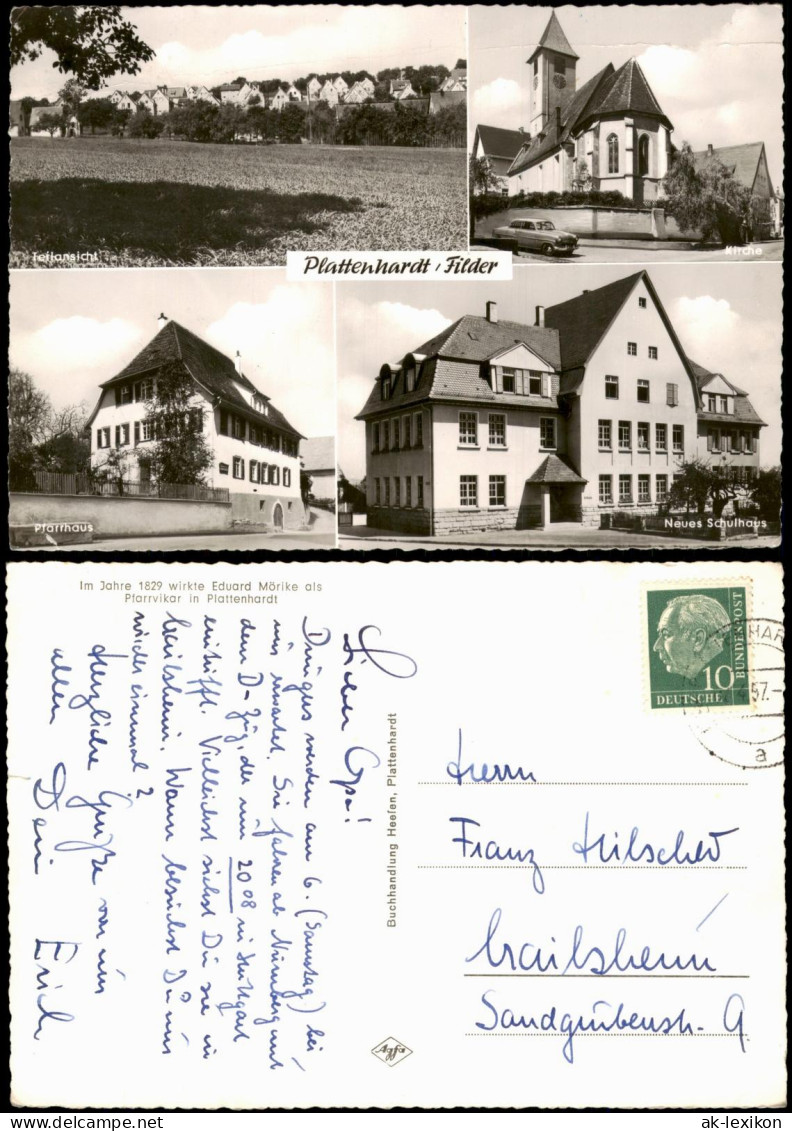 Teilansicht
Kirche
Plattenhardt / Filder
Pfarrhaus
Neues Schulhaus
Im Jahre 1829 wirkte Eduard Mörike als
Pfarrvikar in Plattenhardt
Lieber Opa!
werden am 6. (Samstag) bei
uns erwartet. Sie fahren ab Nürnberg mit
dem D-Zug, der um 20 08 in Stuttgart
eintrifft. Vielleicht siehst Du sie in
Crailsheim. Wann besuchst Du uns
wieder einmal?
Herzliche Grüße von uns
allen Dein Erich
Buchhandlung Heefen, Plattenhardt
Agfa
DEUTSCHE BUNDESPOST
10
57
a
Herrn
Franz Hilscher
Crailsheim
Sandgrubenstr. 9
ak-ansichtskarten.de
ak-lexikon.com